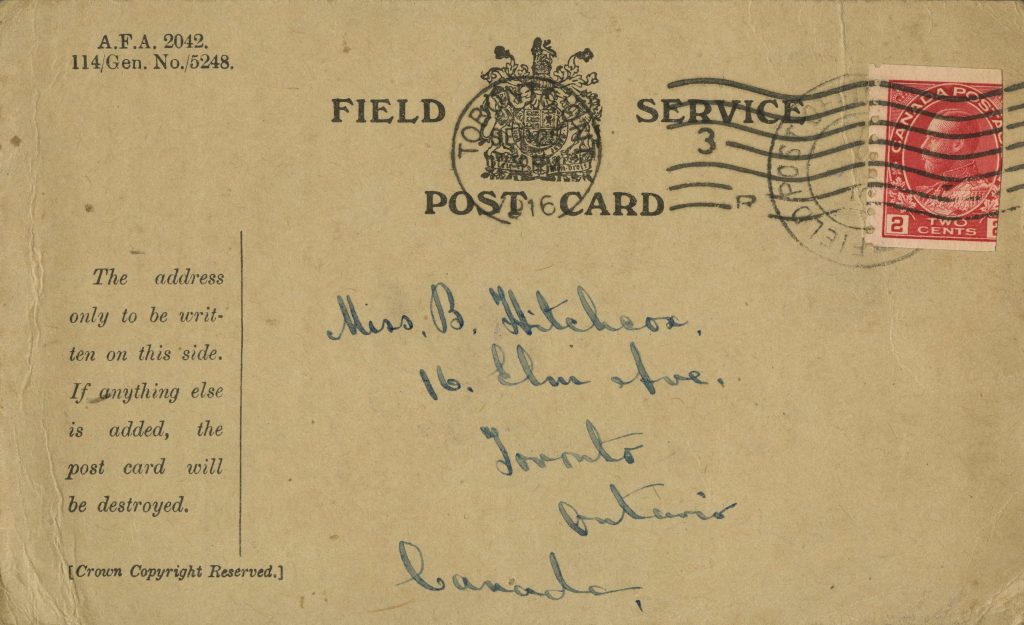 A.F.A. 2042.
114/Gen. No./5248.
FIELD SERVICE
POST CARD
TORONTO, ONT
16
3
R
FIELD POST
CANADA POSTAGE
2 TWO CENTS 2
The address
only to be writ-
ten on this side.
If anything else
is added, the
post card will
be destroyed.
[Crown Copyright Reserved.]
Miss. B. Hitchcox.
16. Elm Ave.
Toronto
Ontario
Canada,